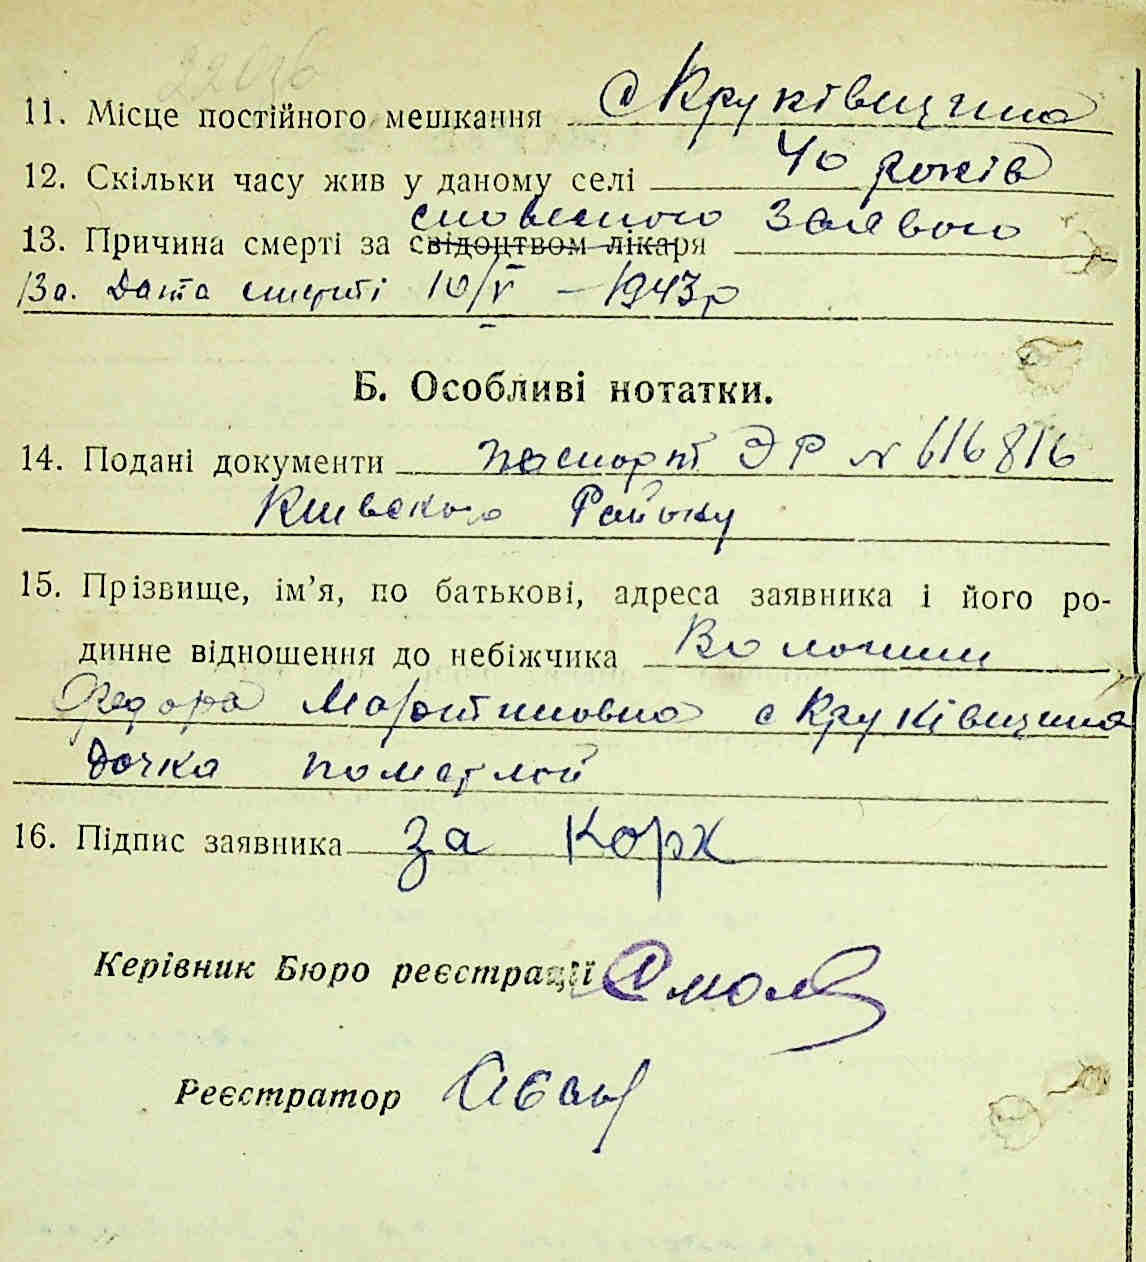 11. Місце постійного мешкання с Круківщина
12. Скільки часу жив у даному селі 40 років
словесною заявою
13. Причина смерті за свідоцтвом лікаря
13а. Дата смерті 10/V – 1943р
Б. Особливі нотатки.
14. Подані документи паспорт ЭР № 616816
Київского Району
15. Прізвище, ім’я, по батькові, адреса заявника і його ро-
динне відношення до небіжчика
Федора Мартиновна с Круківщина
дочка
16. Підпис заявника за Корж
Керівник Бюро реєстрації
Реєстратор